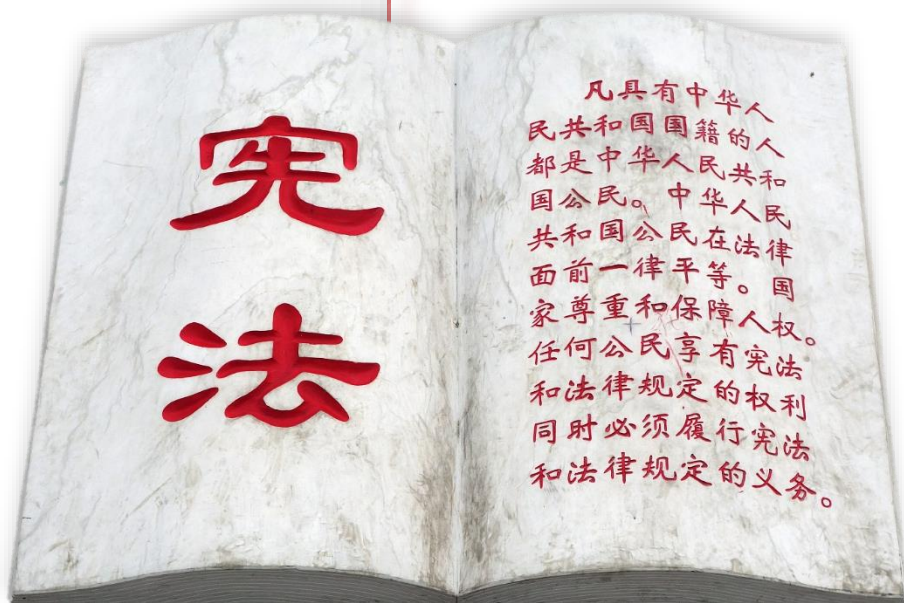 宪
法
凡具有中华人
民共和国国籍的人
都是中华人民共和
国公民。中华人民
共和国公民在法律
面前一律平等。国
家尊重和保障人权。
任何公民享有宪法
和法律规定的权利
同时必须履行宪法
和法律规定的义务。